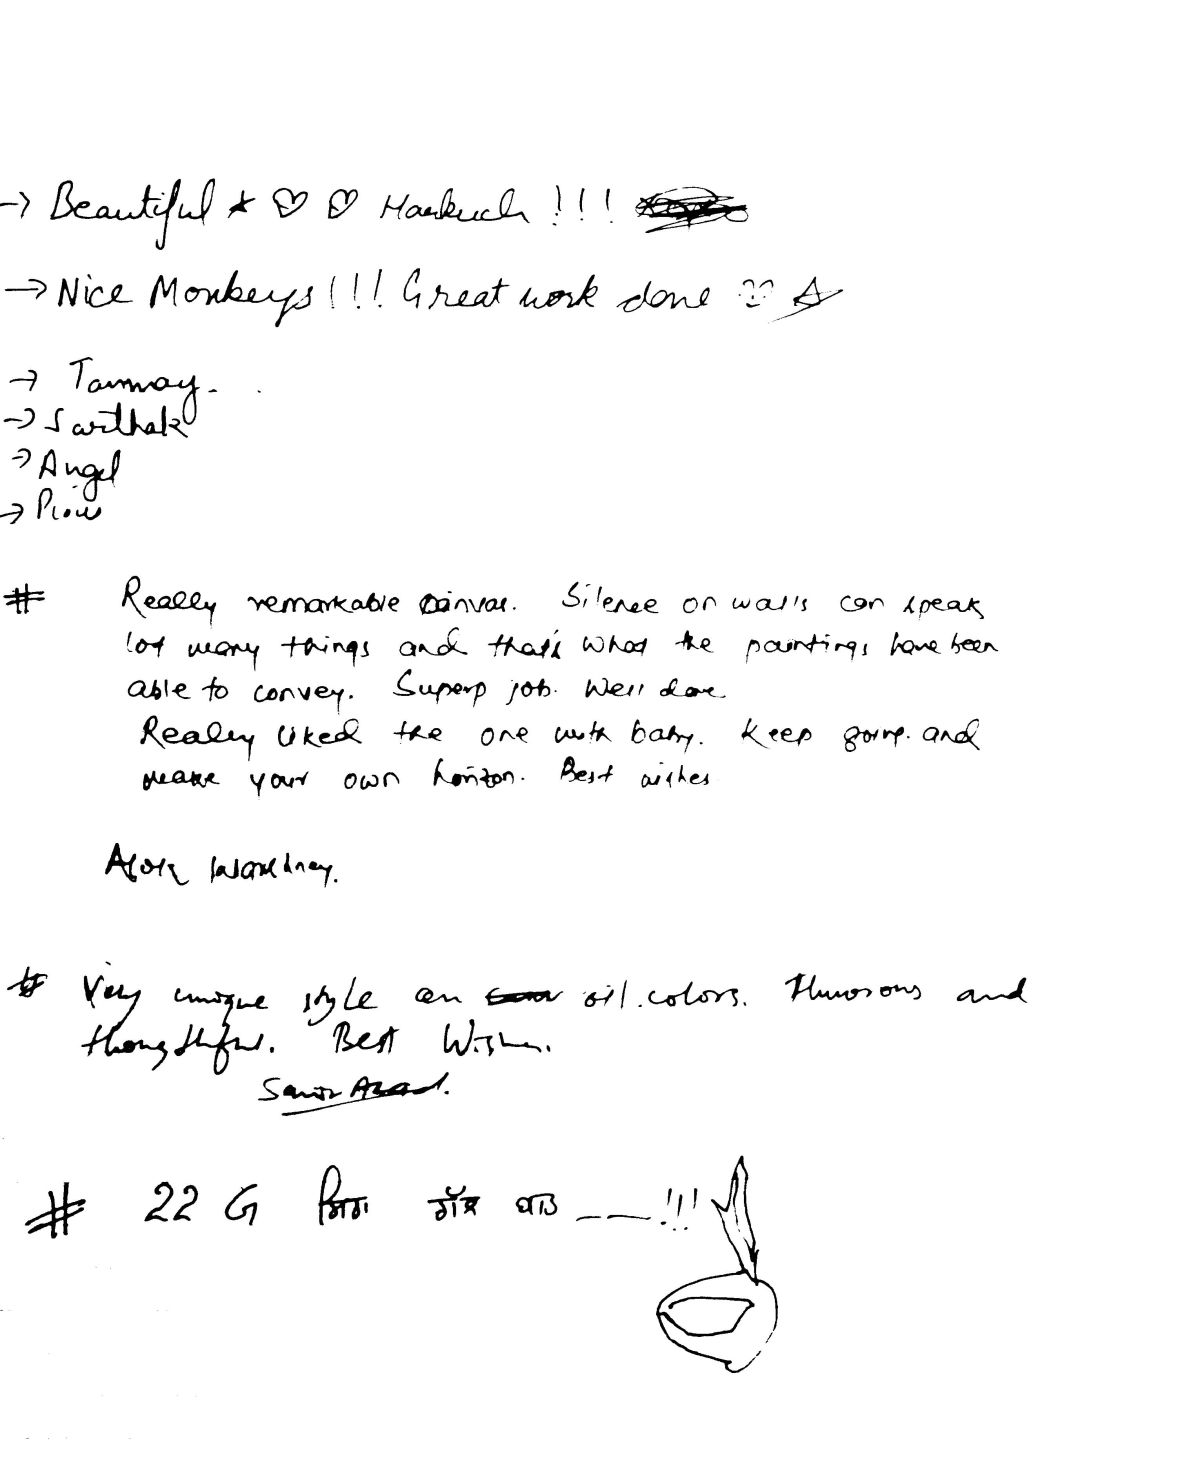 → Beautiful ★ ♡ ♡ !!!
→ Nice Monkeys!!! Great work done ☆
→ Tanmay.
→ Sarthak
→ Angel
→
# Really remarkable canvas. Silence on walls can speak
lot many things and that's what the paintings have been
able to convey. Superp job. Well done.
Really liked the one with baby. Keep going. and
make your own horizon. Best wishes
Alok
# Very unique style on oil.colors. Humorous and
thoughtful. Best Wishes.
# 22 G ਸਿਰਾ ਗੱਲ ਬਾਤ _ _ _ !!!